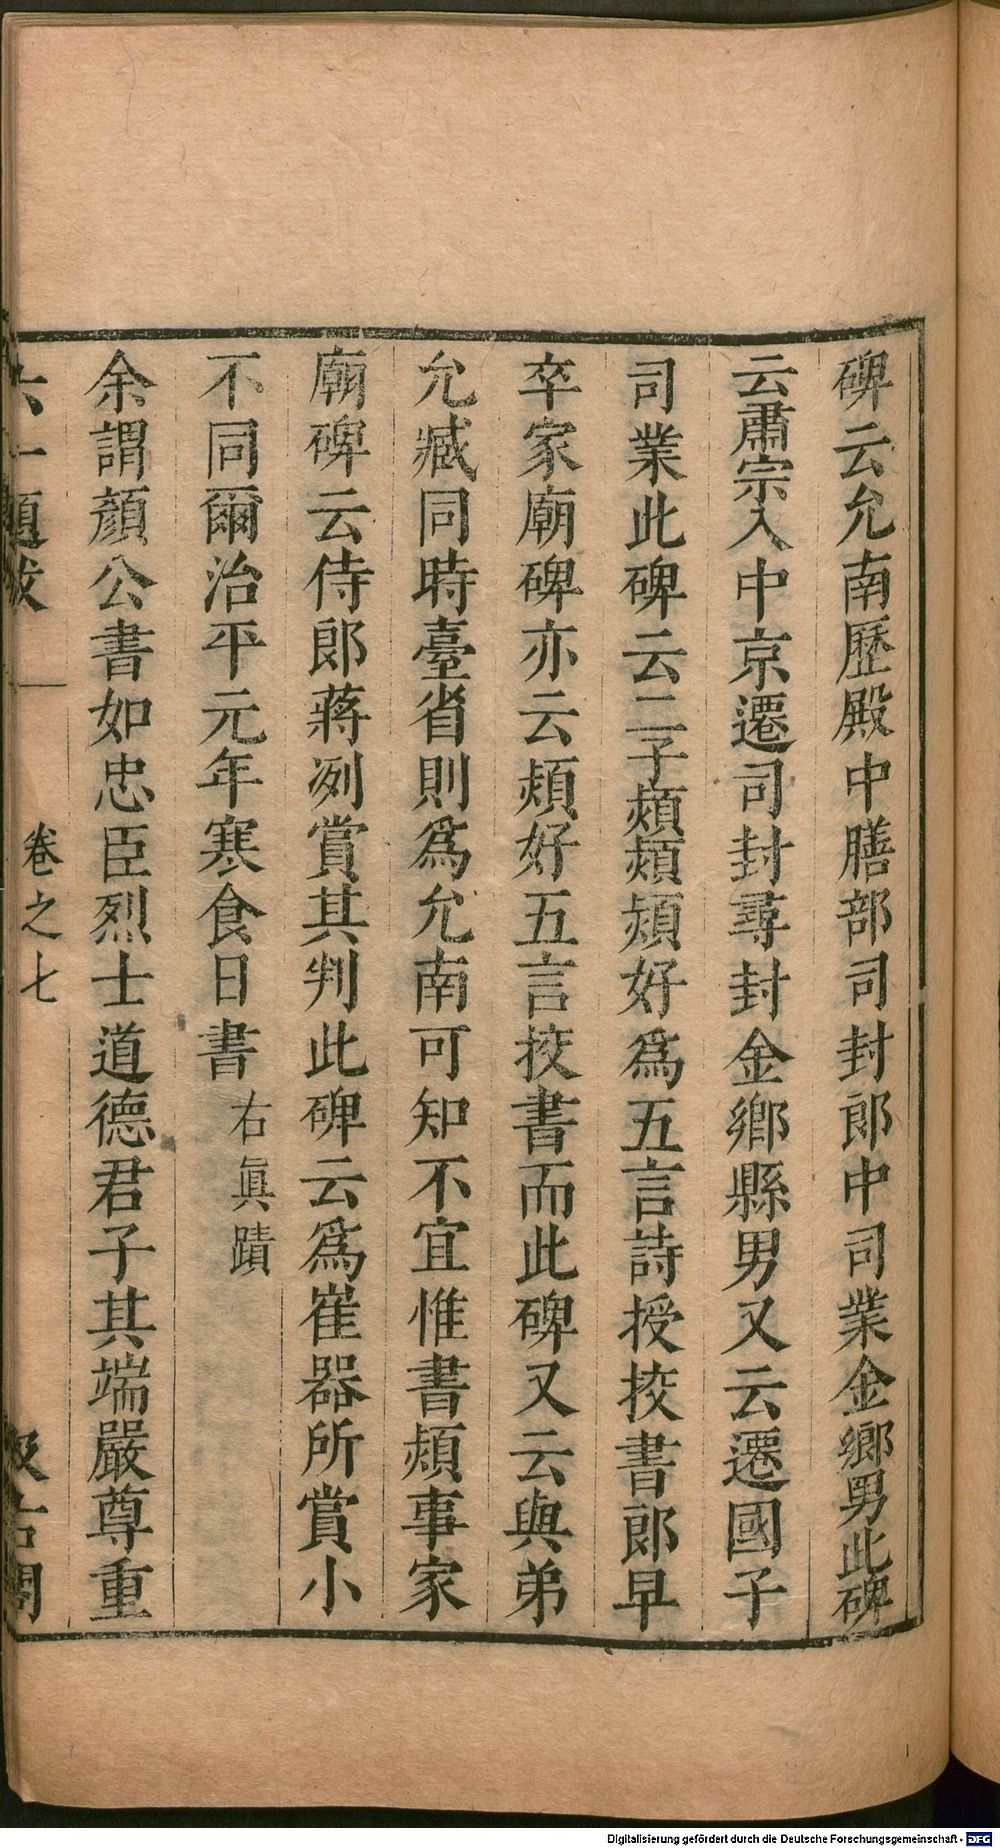 碑云允南歷殿中膳部司封郎中司業金鄉男此碑
云肅宗入中京遷司封尋封金鄉縣男又云遷國子
司業此碑云二子頍熲頍好爲五言詩授挍書郎早
卒家廟碑亦云頍好五言挍書而此碑又云與弟
允臧同時臺省則爲允南可知不宜惟書頍事家
廟碑云侍郎蔣冽賞其判此碑云爲崔器所賞小
不同爾治平元年寒食日書右眞蹟
余謂顏公書如忠臣烈士道德君子其端嚴尊重
六一題跋 卷之七 汲古閣
Digitalisierung gefördert durch die Deutsche Forschungsgemeinschaft - DFG